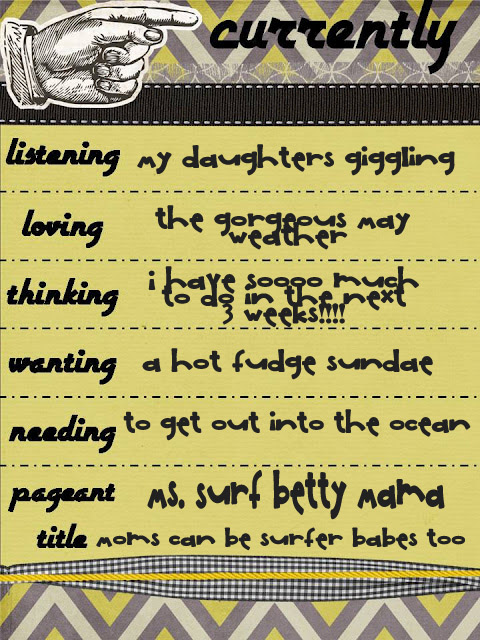 currently
listening my daughters giggling
loving the gorgeous may
weather
thinking i have soooo much
to do in the next
3 weeks!!!!
wanting a hot fudge sundae
needing to get out into the ocean
pageant ms. surf betty mama
title moms can be surfer babes too